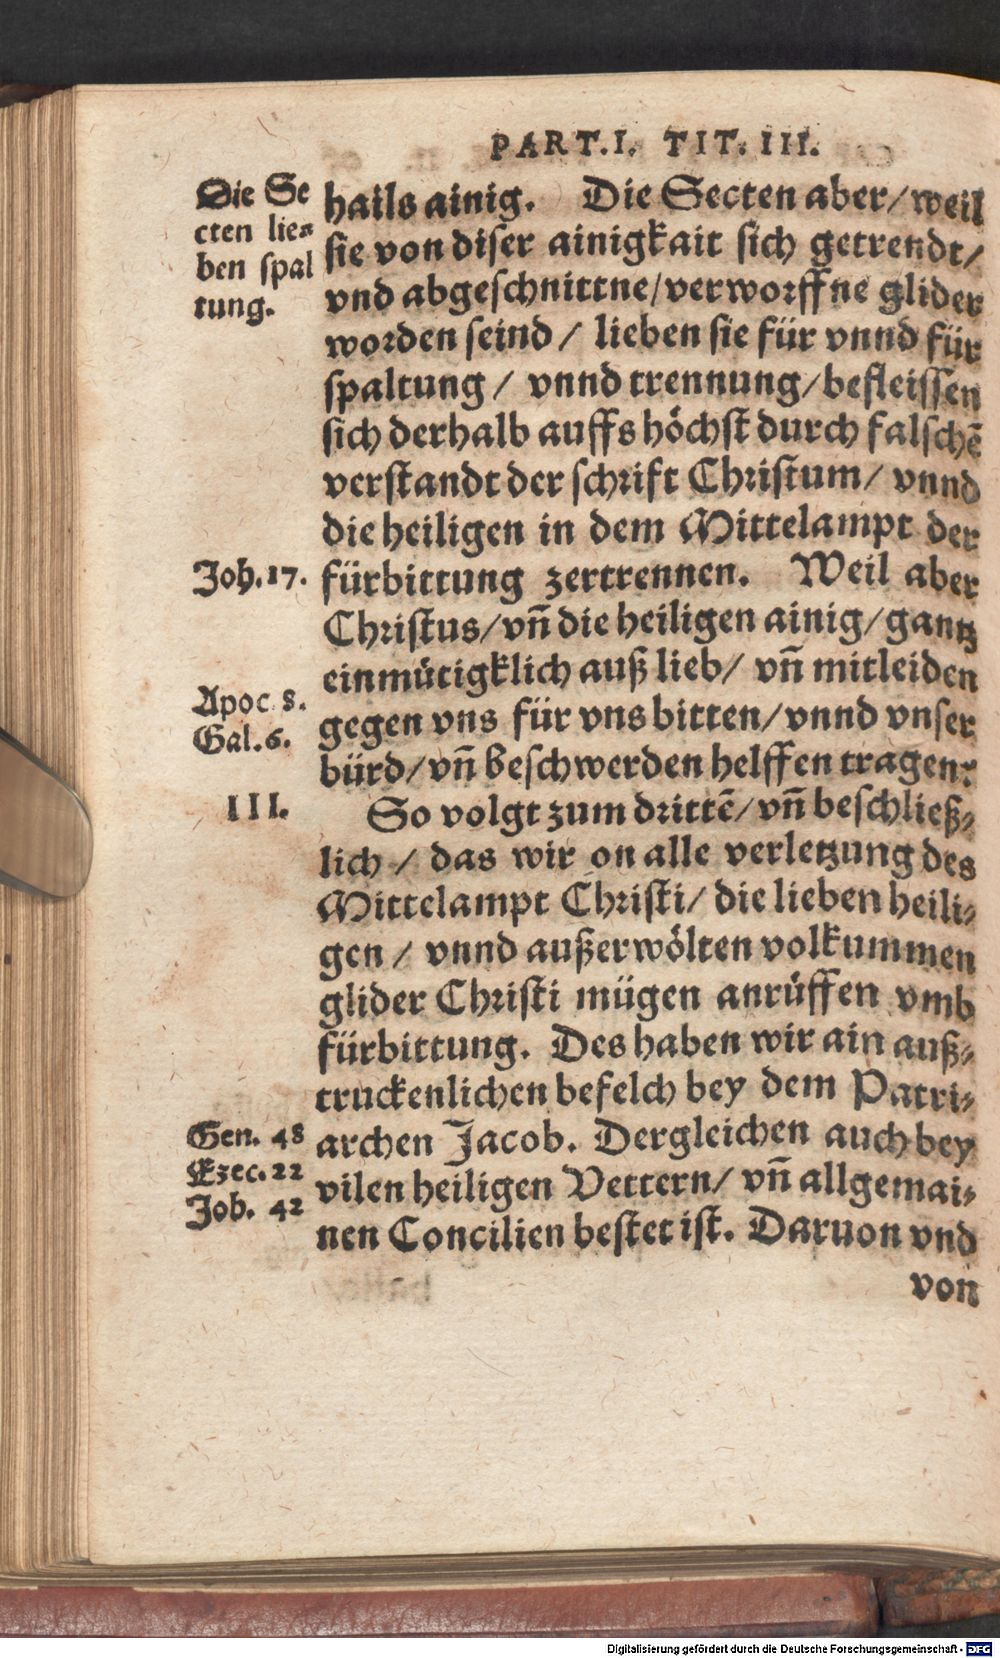 PART. I. TIT. III.
Die Se
cten lie⸗
ben spal
tung.
hails ainig. Die Secten aber/weil
sie von diser ainigkait sich getrendt/
vnd abgeschnittne/verworffne glider
worden seind / lieben sie für vnnd für
spaltung / vnnd trennung/befleissen
sich derhalb auffs höchst durch falschẽ
verstandt der schrift Christum/ vnnd
die heiligen in dem Mittelampt der
Joh. 17.
fürbittung zertrennen. Weil aber
Christus/vñ die heiligen ainig/gantz
einmütigklich auß lieb/ vñ mitleiden
Apoc 8.
gegen vns für vns bitten/vnnd vnser
Gal. 6.
bürd/vñ beschwerden helffen tragen:
III.
So volgt zum drittẽ/vñ beschließ⸗
lich / das wir on alle verletzung des
Mittelampt Christi/ die lieben heili⸗
gen / vnnd außerwölten volkummen
glider Christi mügen anrüffen vmb
fürbittung. Des haben wir ain auß⸗
truckenlichen befelch bey dem Patri⸗
Gen. 48
archen Jacob. Dergleichen auch bey
Ezec. 22
vilen heiligen Vettern/ vñ allgemai⸗
Job. 42
nen Concilien bestet ist. Daruon vnd
von
Digitalisierung gefördert durch die Deutsche Forschungsgemeinschaft - DFG